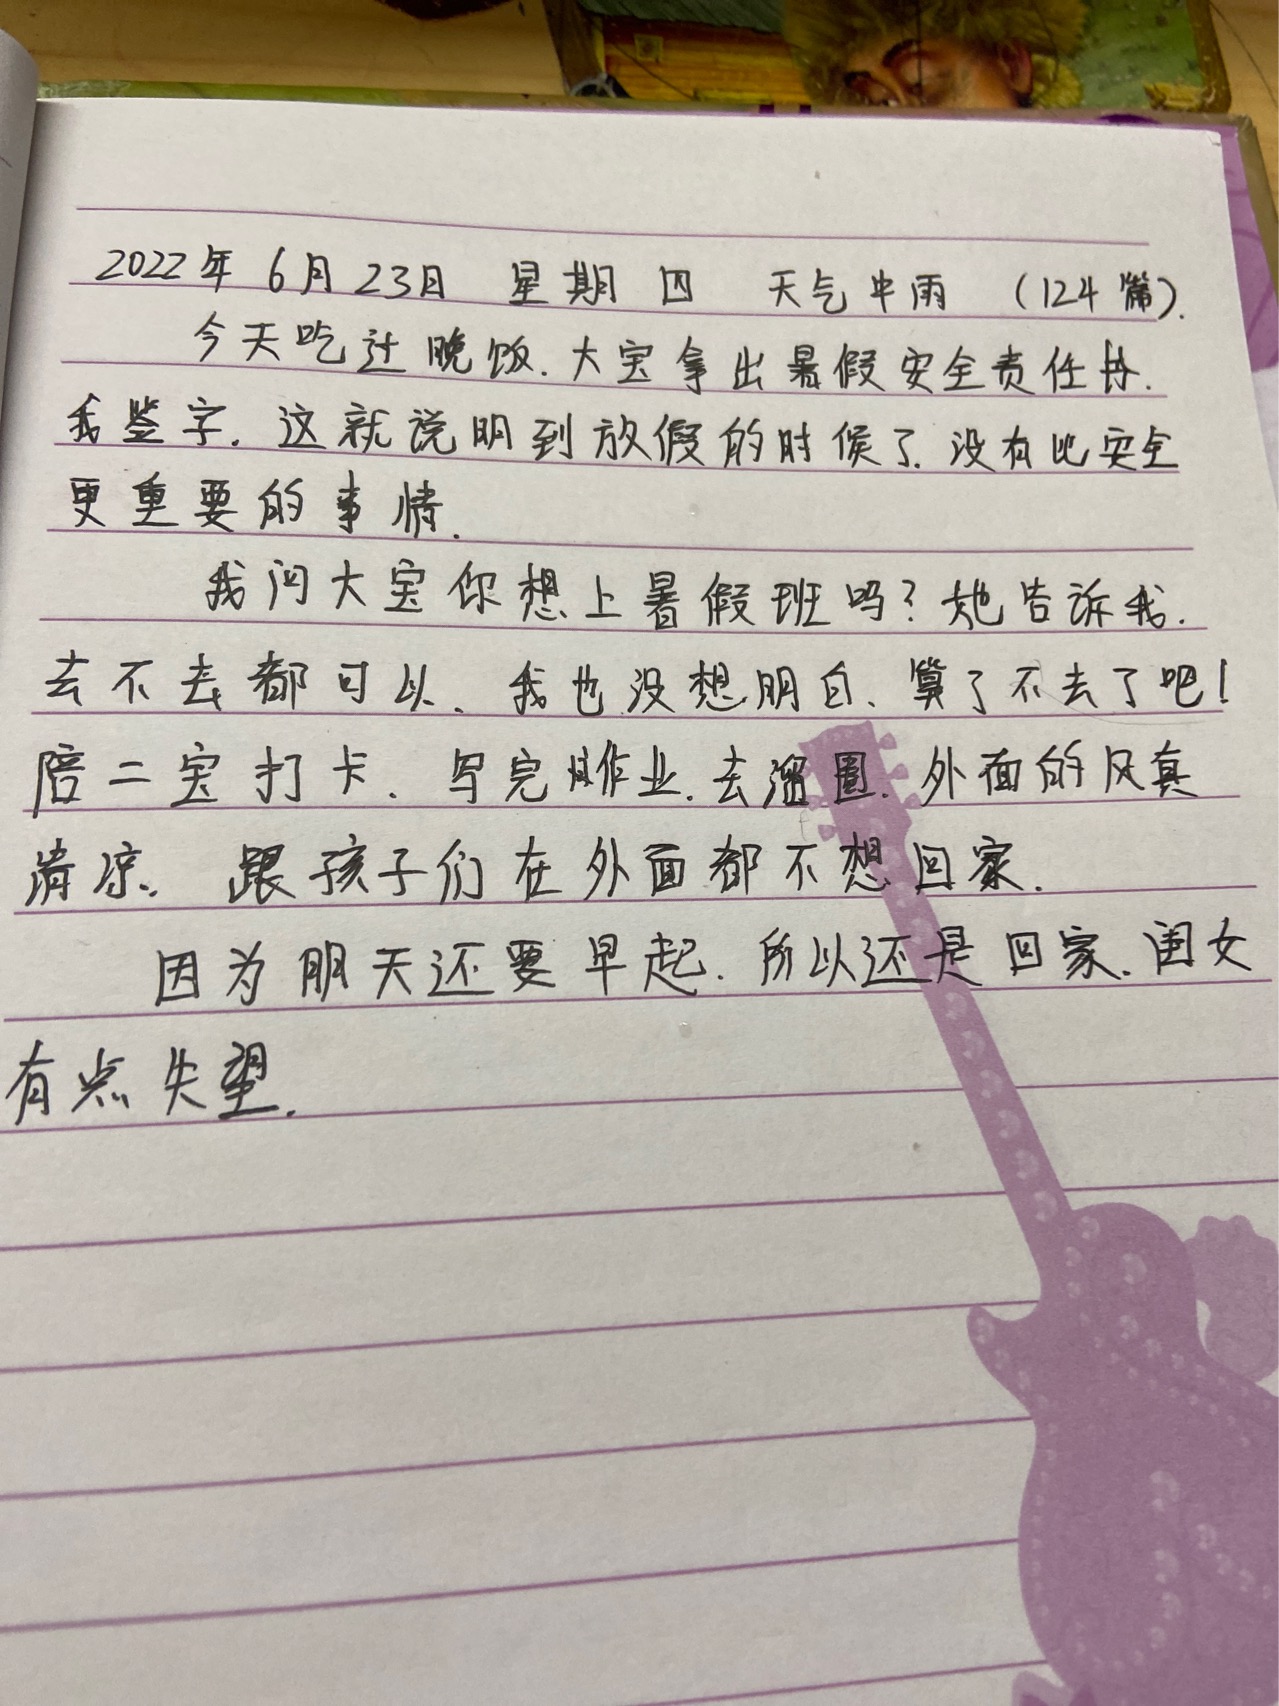 2022年 6月23日 星期四 天气中雨 (124篇).
今天吃过晚饭.大宝拿出暑假安全责任书.
我签字.这就说明到放假的时候了.没有比安全
更重要的事情.
我问大宝你想上暑假班吗?她告诉我.
去不去都可以.我也没想明白、算了不去了吧!
陪二宝打卡.写完作业.去溜圈.外面的风真
清凉.跟孩子们在外面都不想回家.
因为明天还要早起.所以还是回家.闺女
有点失望.